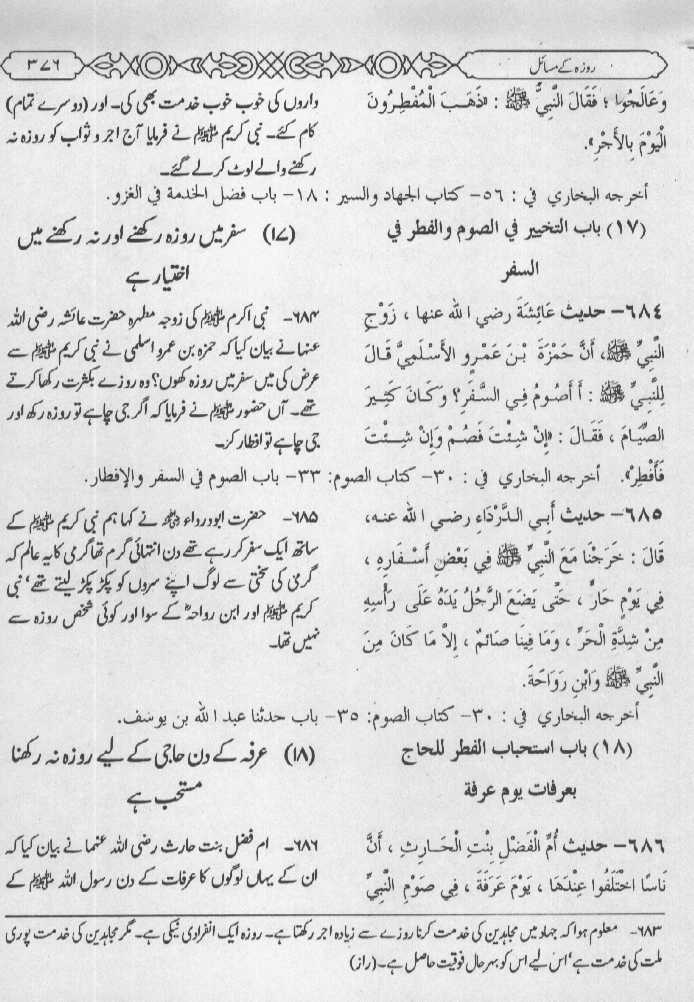 روزہ کے مسائل
۳۷۶
وَعَالَجُوا ؛ فَقَالَ النَّبِيُّ ﷺ : «ذَهَبَ الْمُفْطِرُونَ
الْيَوْمَ بِالأَجْرِ».
واروں کی خوب خوب خدمت بھی کی۔ اور (دوسرے تمام)
کام کئے۔ نبی کریم ﷺ نے فرمایا آج اجر و ثواب کو روزہ نہ
رکھنے والے لوٹ کر لے گئے۔
أخرجه البخاري في : ٥٦- كتاب الجهاد والسير : ١٨- باب فضل الخدمة في الغزو.
(١٧) باب التخيير في الصوم والفطر في
السفر
(۱۷) سفر میں روزہ رکھنے اور نہ رکھنے میں
اختیار ہے
٦٨٤- حديث عَائِشَةَ رضي الله عنها ، زَوْجِ
النَّبِيِّ ﷺ، أَنَّ حَمْزَةَ بْنَ عَمْرٍو الأَسْلَمِيَّ قَالَ
لِلنَّبِيِّ ﷺ : أَأَصُومُ فِي السَّفَرِ؟ وَكَانَ كَثِيرَ
الصِّيَامَ ، فَقَالَ : «إِنْ شِئْتَ فَصُمْ وَإِنْ شِئْتَ
فَأَفْطِرْ». أخرجه البخاري في : ٣٠- كتاب الصوم: ٣٣- باب الصوم في السفر والإفطار.
۶۸۴۔ نبی اکرم ﷺ کی زوجہ مطہرہ حضرت عائشہ رضی اللہ
عنہا نے بیان کیا کہ حمزہ بن عمرو اسلمی نے نبی کریم ﷺ سے
عرض کی میں سفر میں روزہ رکھوں؟ وہ روزے بکثرت رکھا کرتے
تھے۔ آں حضور ﷺ نے فرمایا کہ اگر جی چاہے تو روزہ رکھ اور
جی چاہے تو افطار کر۔
٦٨٥- حديث أَبِي الدَّرْدَاءِ رضي الله عنه،
قَالَ : خَرَجْنَا مَعَ النَّبِيِّ ﷺ فِي بَعْضِ أَسْفَارِهِ ،
فِي يَوْمٍ حَارٍّ ، حَتَّى يَضَعَ الرَّجُلُ يَدَهُ عَلَى رَأْسِهِ
مِنْ شِدَّةِ الْحَرِّ ، وَمَا فِينَا صَائِمٌ ، إِلاَّ مَا كَانَ مِنَ
النَّبِيِّ ﷺ وَابْنِ رَوَاحَةَ.
۶۸۵۔ حضرت ابودرداء ؓ نے کہا ہم نبی کریم ﷺ کے
ساتھ ایک سفر کر رہے تھے دن انتہائی گرم تھا گرمی کا یہ عالم کہ
گرمی کی سختی سے لوگ اپنے سروں کو پکڑ پکڑ لیتے تھے‘ نبی
کریم ﷺ اور ابن رواحہؓ کے سوا اور کوئی شخص روزہ سے
نہیں تھا۔
أخرجه البخاري في : ٣٠- كتاب الصوم: ٣٥- باب حدثنا عبد الله بن يوسف.
(١٨) باب استحباب الفطر للحاج
بعرفات يوم عرفة
(۱۸) عرفہ کے دن حاجی کے لیے روزہ نہ رکھنا
مستحب ہے
٦٨٦- حديث أُمِّ الْفَضْلِ بِنْتِ الْحَارِثِ ، أَنَّ
نَاسًا اخْتَلَفُوا عِنْدَهَا ، يَوْمَ عَرَفَةَ ، فِي صَوْمِ النَّبِيِّ
۶۸۶۔ ام فضل بنت حارث رضی اللہ عنہا نے بیان کیا کہ
ان کے یہاں لوگوں کا عرفات کے دن رسول اللہ ﷺ کے
۶۸۳۔ معلوم ہوا کہ جہاد میں مجاہدین کی خدمت کرنا روزے سے زیادہ اجر رکھتا ہے۔ روزہ ایک انفرادی نیکی ہے۔ مگر مجاہدین کی خدمت پوری
ملت کی خدمت ہے‘ اس لیے اس کو بہر حال فوقیت حاصل ہے۔ (راز)